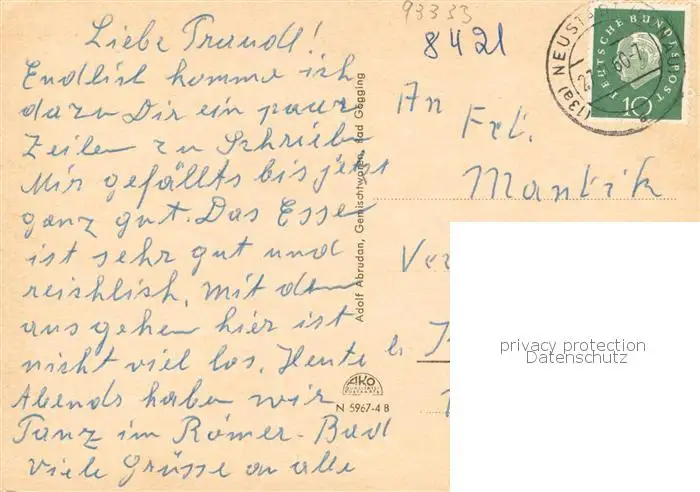 93333
8421
Liebe Traudl!
Endlich komme ich
dazu Dir ein paar
Zeilen zu Schrieben
Mir gefällts bis jetzt
ganz gut. Das Esse
ist sehr gut und
reichlich. Mit dem
ausgehen hier ist
nicht viel los. Heute
Abends haben wir
Tanz im Römer-Bad
viele Grüsse an alle
Adolf Abrudan, Gemischtwaren, Bad Gögging
AKO
N 5967-4 B
(13a) NEUSTADT
DEUTSCHE BUNDESPOST
10
An
Frl.
Mantik
privacy protection
Datenschutz